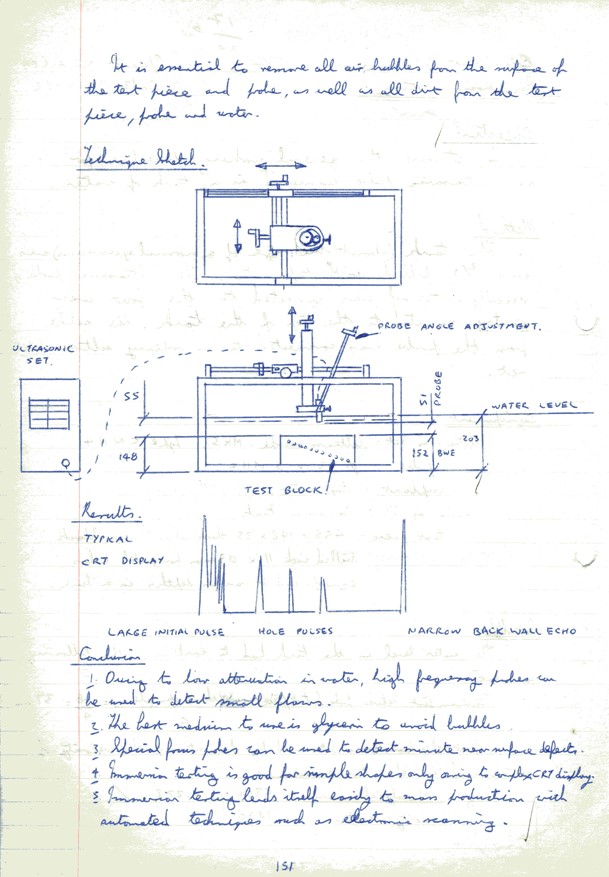 It is essential to remove all air bubbles from the surface of
the test piece and probe, as well as all dirt from the test
piece, probe and water.
Technique Sketch.
PROBE ANGLE ADJUSTMENT.
ULTRASONIC
SET.
55
51
PROBE
WATER LEVEL
148
152
BWE
203
TEST BLOCK.
Results.
TYPICAL
CRT DISPLAY
LARGE INITIAL PULSE HOLE PULSES NARROW BACK WALL ECHO
Conclusion
1. Owing to low attenuation in water, high frequency probes can
be used to detect small flaws.
2. The best medium to use is glycerin to avoid bubbles
3. Special focus probes can be used to detect minute near surface defects.
4 Immersion testing is good for simple shapes only owing to complex CRT display.
5 Immersion testing lends itself easily to mass production with
automated techniques such as electronic scanning.
151